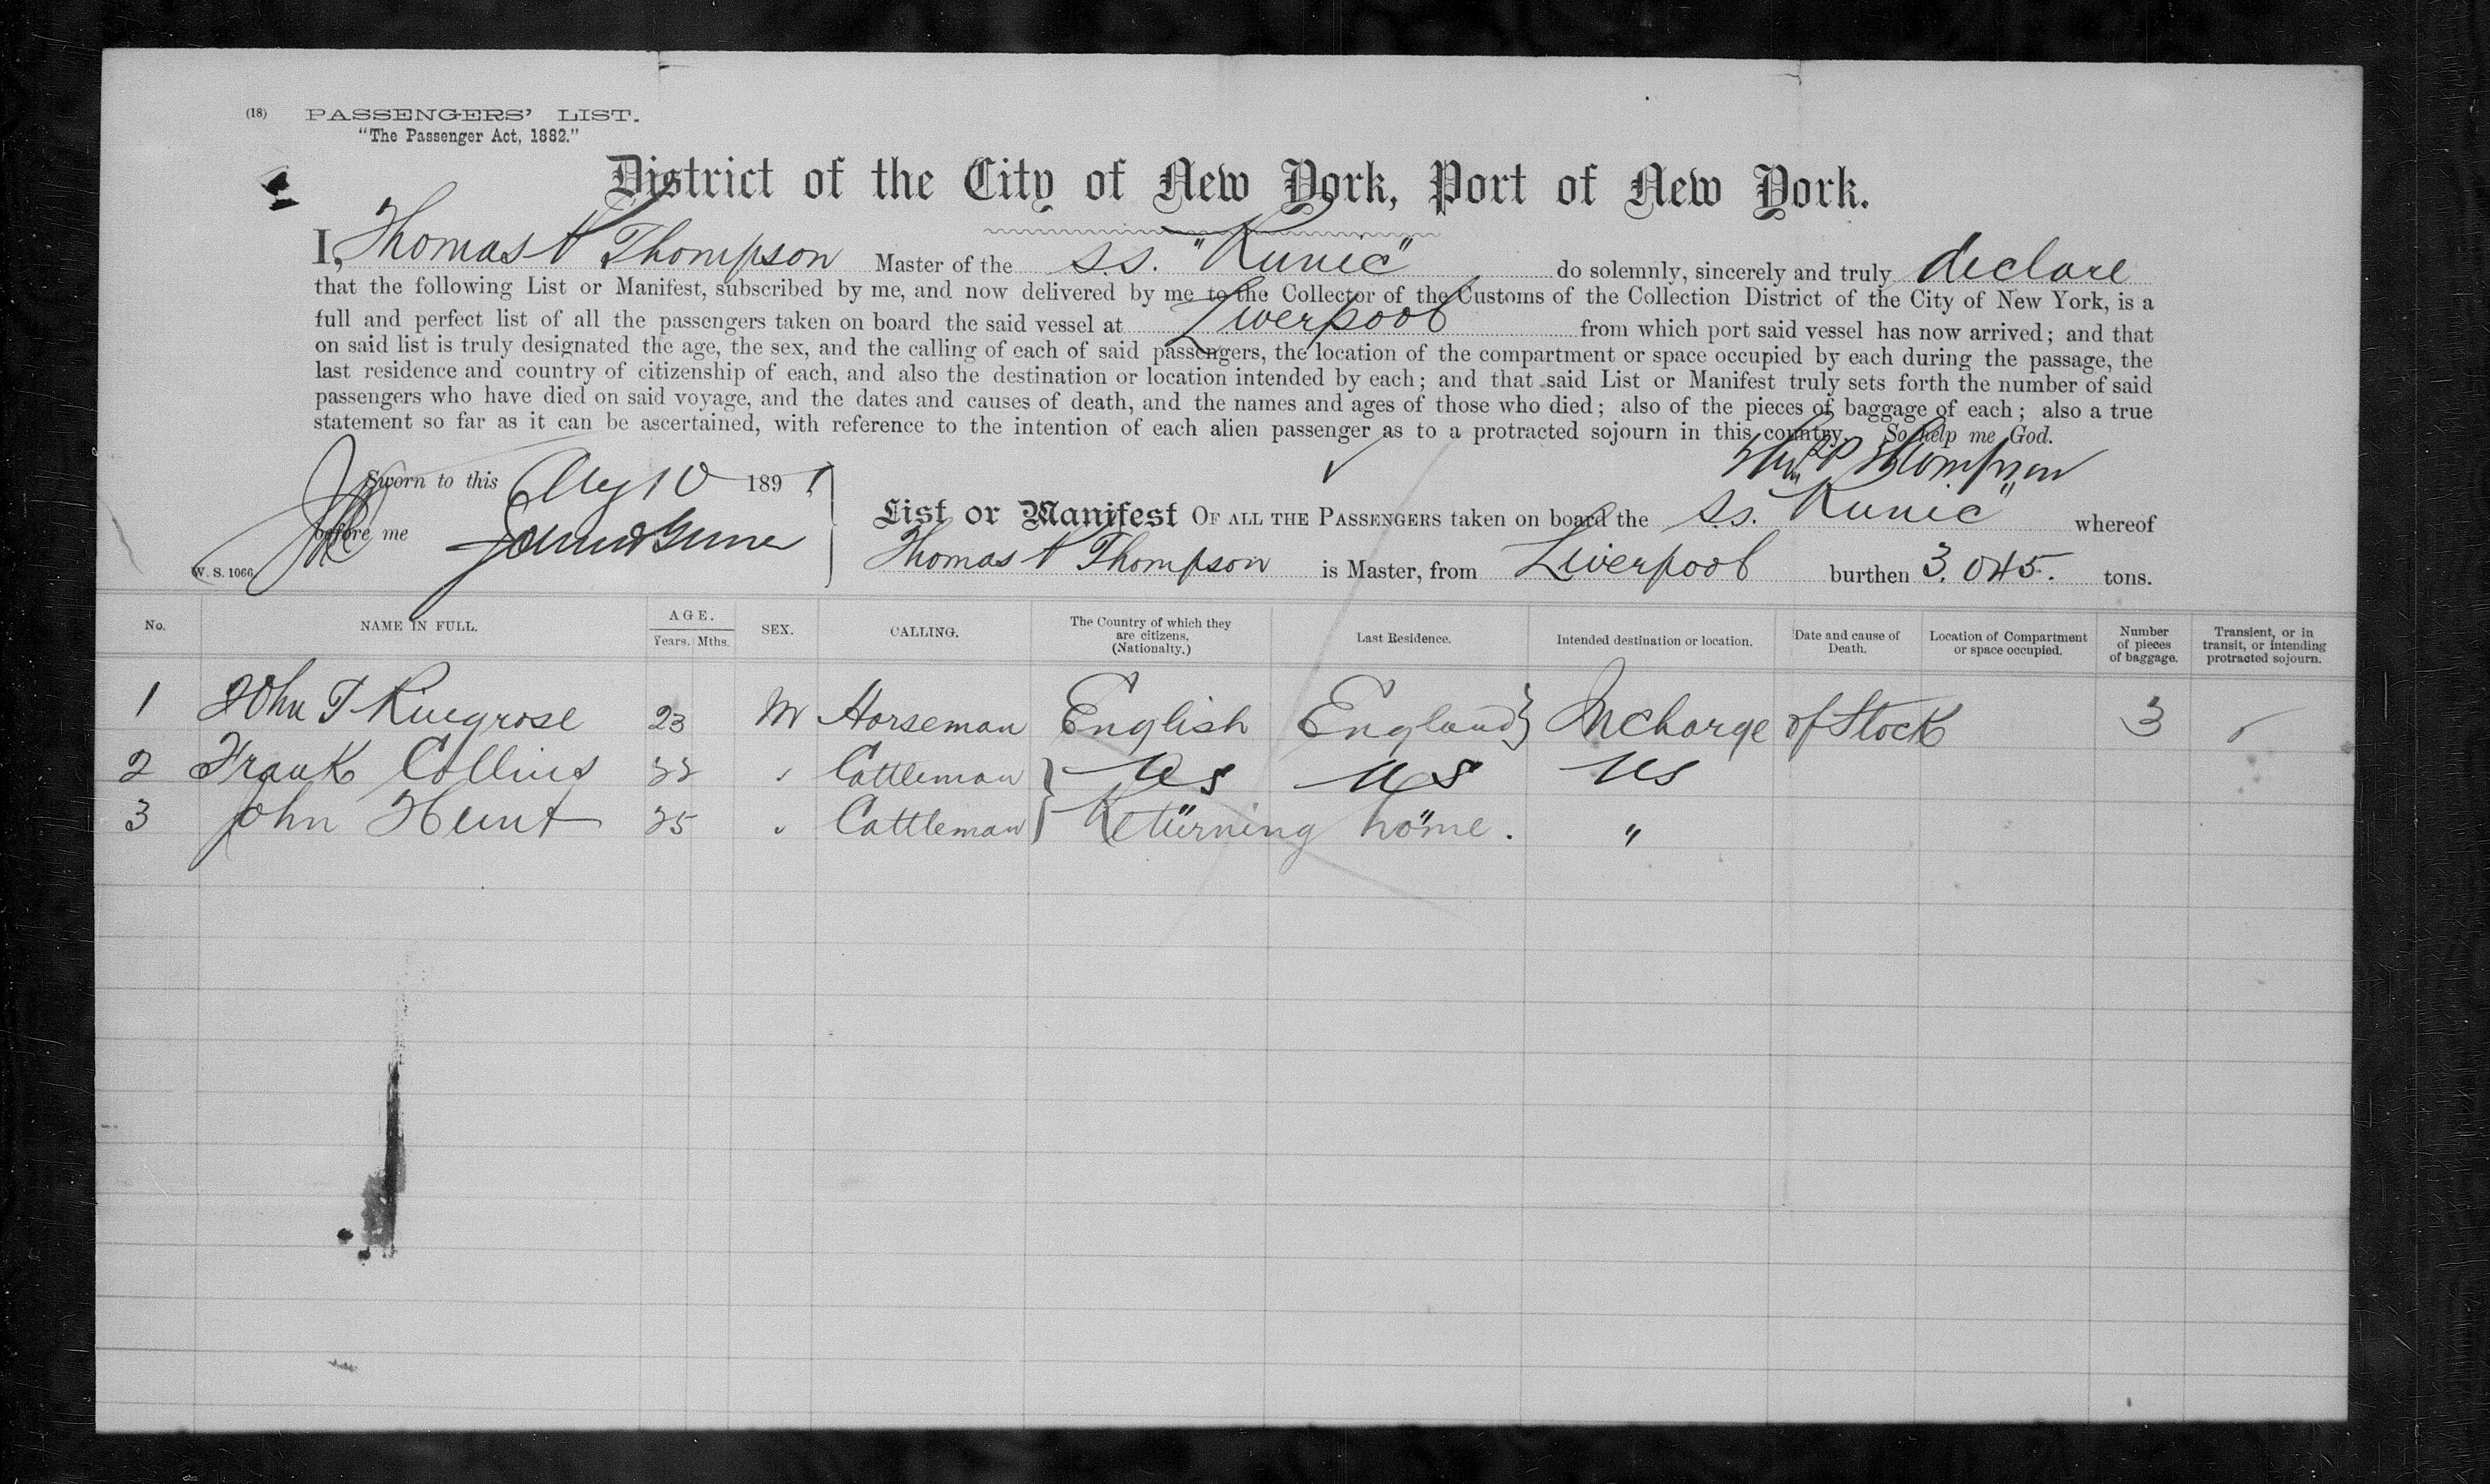 (18) PASSENGERS' LIST.
"The Passenger Act, 1882."
District of the City of New York, Port of New York.
I, Thomas P Thompson Master of the S.S. "Runic" do solemnly, sincerely and truly declare
that the following List or Manifest, subscribed by me, and now delivered by me to the Collector of the Customs of the Collection District of the City of New York, is a
full and perfect list of all the passengers taken on board the said vessel at Liverpool from which port said vessel has now arrived; and that
on said list is truly designated the age, the sex, and the calling of each of said passengers, the location of the compartment or space occupied by each during the passage, the
last residence and country of citizenship of each, and also the destination or location intended by each; and that said List or Manifest truly sets forth the number of said
passengers who have died on said voyage, and the dates and causes of death, and the names and ages of those who died; also of the pieces of baggage of each; also a true
statement so far as it can be ascertained, with reference to the intention of each alien passenger as to a protracted sojourn in this country. So help me God.
Thompson
Sworn to this Aug 10 1891
before me
List or Manifest OF ALL THE PASSENGERS taken on board the S.S. "Runic" whereof
Thomas P Thompson is Master, from Liverpool burthen 3.045. tons.
W. S. 1066
No. NAME IN FULL. AGE. Years. Mths. SEX. CALLING. The Country of which they are citizens. (Nationalty.) Last Residence. Intended destination or location. Date and cause of Death. Location of Compartment or space occupied. Number of pieces of baggage. Transient, or in transit, or intending protracted sojourn.
1 John T Ringrose 23 M Horseman English England } In charge of Stock 3
2 Frank Collins 22 " Cattleman } US US US
3 John Hunt 25 " Cattleman } Returning home. "